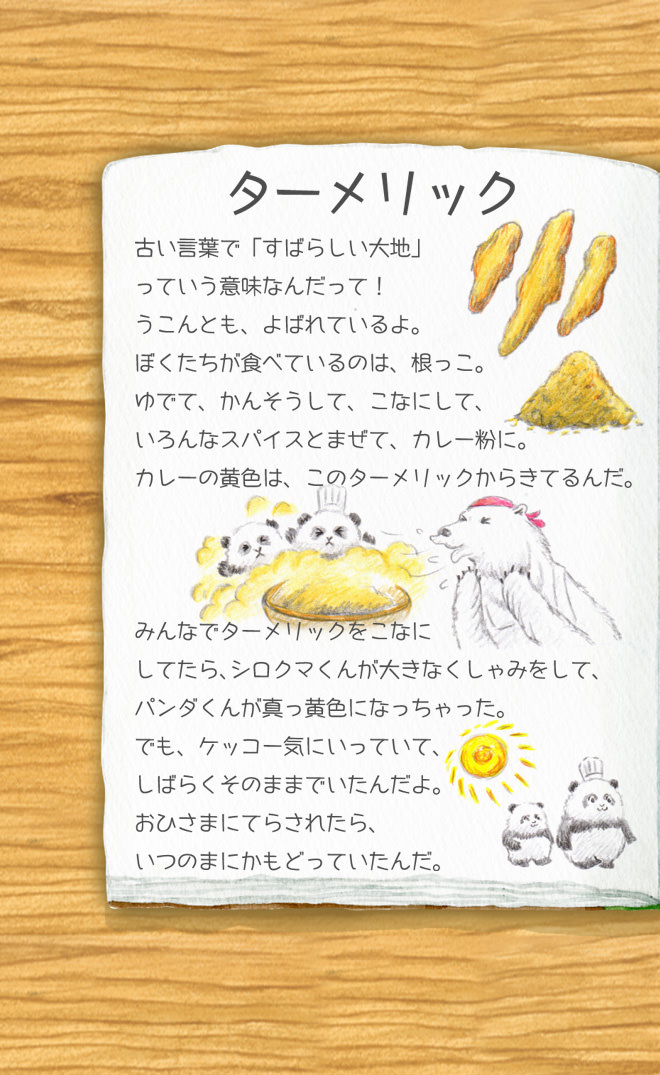 ターメリック
古い言葉で「すばらしい大地」
っていう意味なんだって！
うこんとも、よばれているよ。
ぼくたちが食べているのは、根っこ。
ゆでて、かんそうして、こなにして、
いろんなスパイスとまぜて、カレー粉に。
カレーの黄色は、このターメリックからきてるんだ。
みんなでターメリックをこなに
してたら、シロクマくんが大きなくしゃみをして、
パンダくんが真っ黄色になっちゃった。
でも、ケッコー気にいっていて、
しばらくそのままでいたんだよ。
おひさまにてらされたら、
いつのまにかもどっていたんだ。